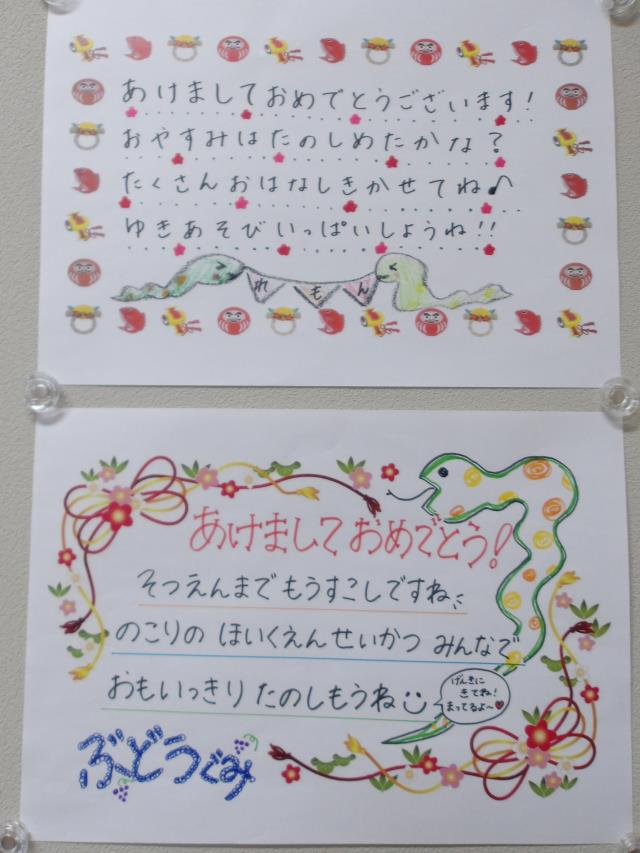 あけましておめでとうございます!
おやすみはたのしめたかな?
たくさんおはなしきかせてね♪
ゆきあそびいっぱいしようね!!
れもん
あけましておめでとう!
そつえんまでもうすこしですね
のこりの ほいくえんせいかつ みんなで
おもいっきり たのしもうね
げんきに
きてね!
まってるよ~♥
ぶどうぐみ